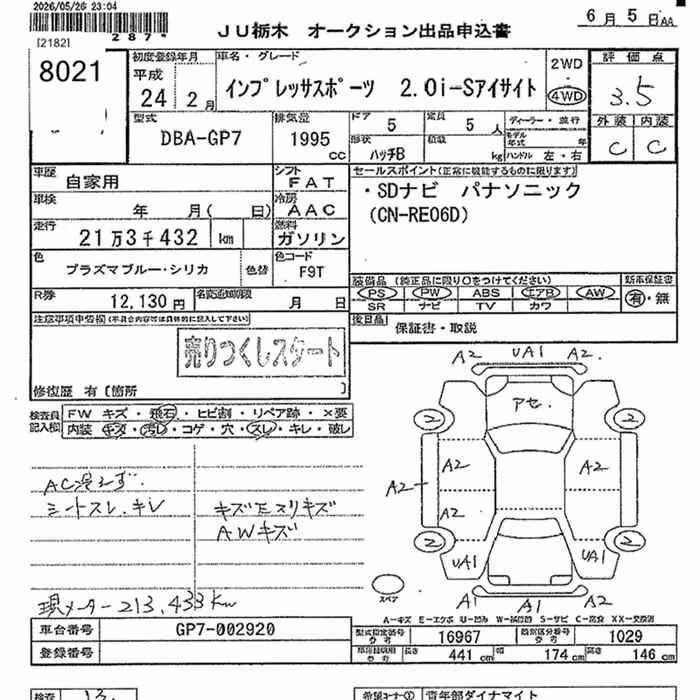 2026/05/26 23:04
287*
[2182]
JU栃木 オークション出品申込書
6月 5日AA
8021
初度登録年月
平成
24 2月
車名・グレード
インプレッサスポーツ 2.0i-Sアイサイト
2WD
・
4WD
評価点
3.5
外装 内装
C C
型式
DBA-GP7
排気量
1995
cc
ドア
5
定員
5人
形状
ハッチB
積載
kg
ディーラー・並行
モデル年式 年
ハンドル 左・右
車歴
自家用
シフト
FAT
車検
年 月( 日)
冷房
AAC
走行
21万3千432 km
燃料
ガソリン
色
プラズマブルー・シリカ
色替
色コード
F9T
R券
12,130円
名変期限
月 日
セールスポイント(正常に機能するものに限ります)
・SDナビ パナソニック
(CN-RE06D)
装備品 (純正品に限り○をつけてください)
PS PW ABS エアB AW
SR ナビ TV カワ
新車保証書
有・無
後日品
保証書・取説
注意事項申告欄
売りつくしスタート
修復歴 有 [箇所 ]
検査員記入欄
FW キズ・飛石・ヒビ割・リペア跡・×要
内装 キズ・汚レ・コゲ・穴・スレ・キレ・破レ
AC冷えず.
シートスレ.キレ
キズモスリキズ
AWキズ
現メーター213,433km
A2 UA1 A2
アセ
2 2
A2 A2
A2
A2
2 2
UA1 UA1
A1 A1 A2
スペア
A-キズ E-エクボ U-凹み W-補修跡 S-サビ C-腐食 XX-交換済
車台番号
GP7-002920
登録番号
型式指定番号
参考
16967
類別区分番号
参考
1029
車検証記載
参考
長さ
441 cm
幅
174 cm
高さ
146 cm
検査
13.
希望コーナー①
青年部ダイナマイト